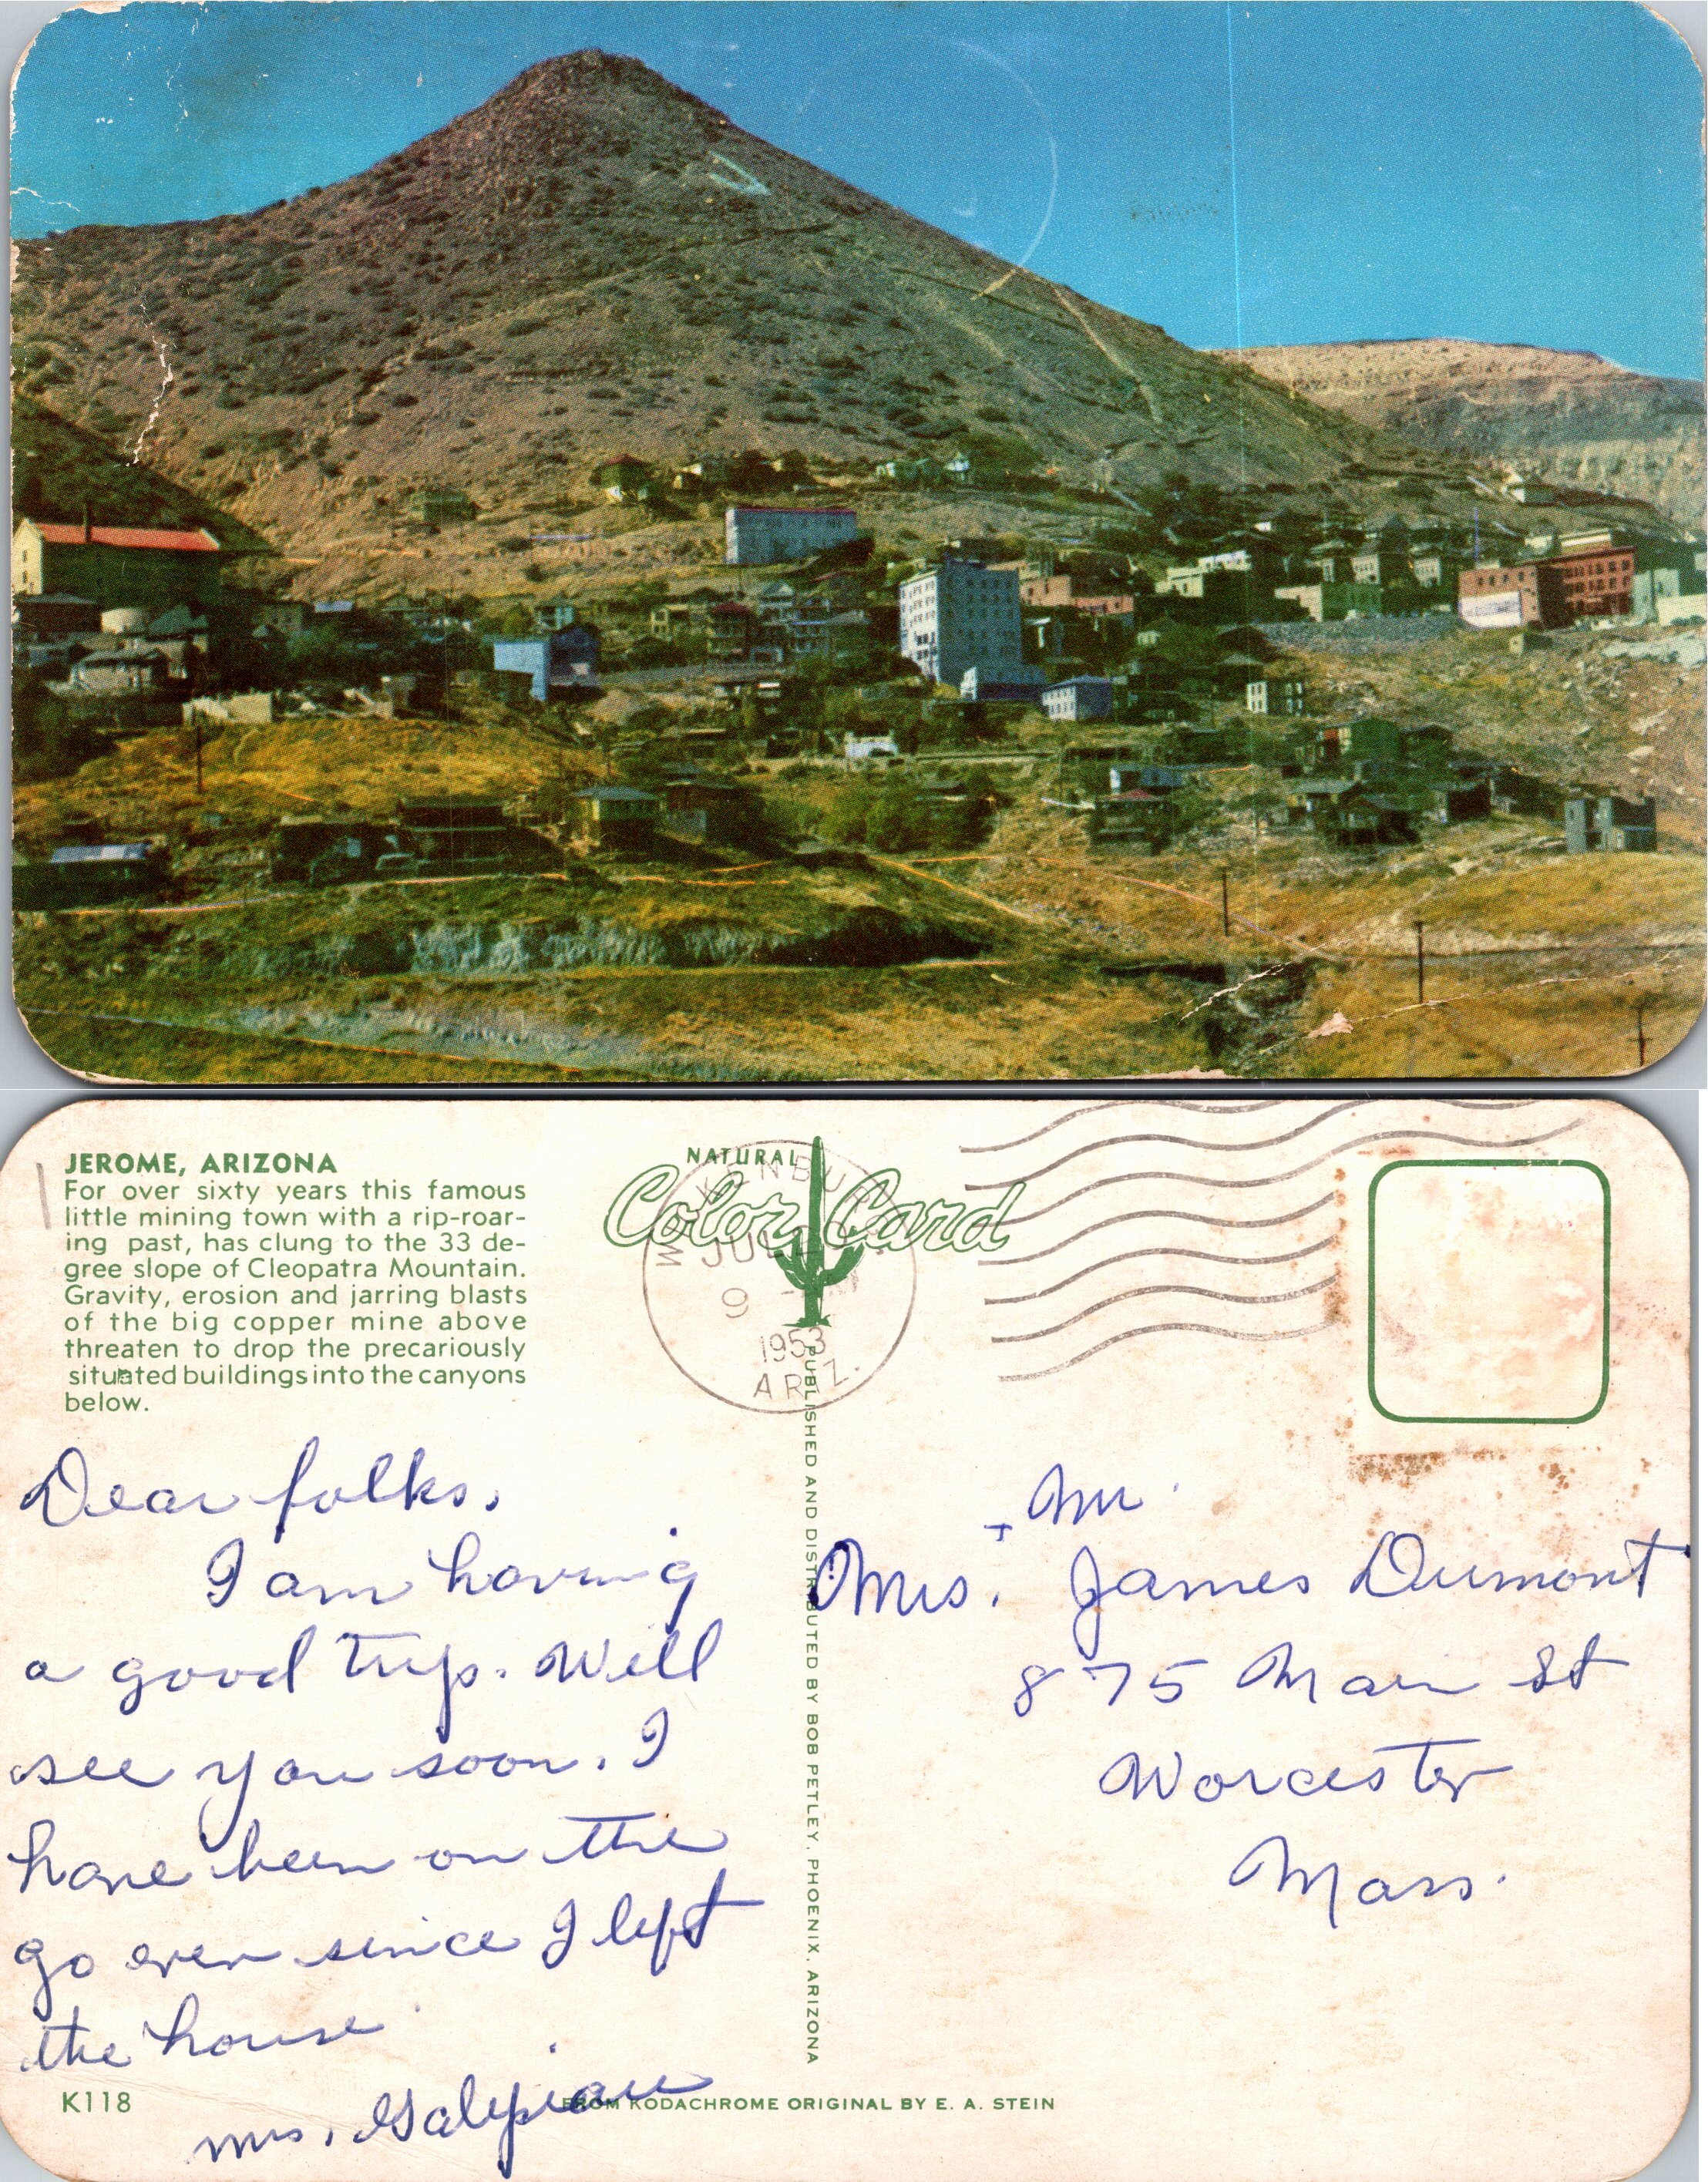 JEROME, ARIZONA
For over sixty years this famous
little mining town with a rip-roar-
ing past, has clung to the 33 de-
gree slope of Cleopatra Mountain.
Gravity, erosion and jarring blasts
of the big copper mine above
threaten to drop the precariously
situated buildings into the canyons
below.
NATURAL
Color Card
JUL
9
1953
ARIZ.
PUBLISHED AND DISTRIBUTED BY BOB PETLEY, PHOENIX, ARIZONA
Dear folks,
I am having
a good trip. Will
see you soon. I
have been on the
go ever since I left
the house
Mrs.
+ Mr.
Mrs. James Dumont
875 Main St
Worcester
Mass.
K118
FROM KODACHROME ORIGINAL BY E. A. STEIN